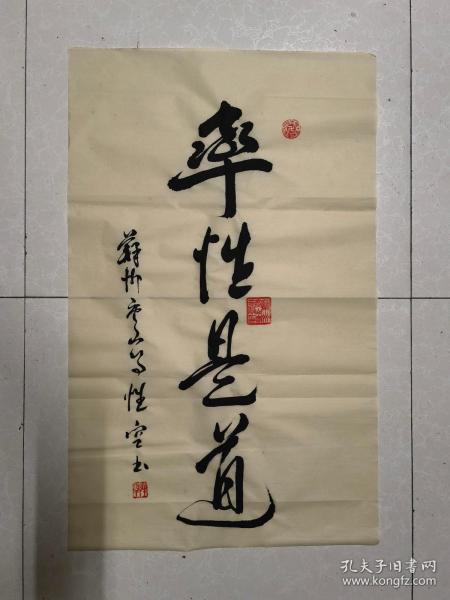 率性是道
蘇州寒山寺性空书
孔夫子旧书网
www.kongfz.com